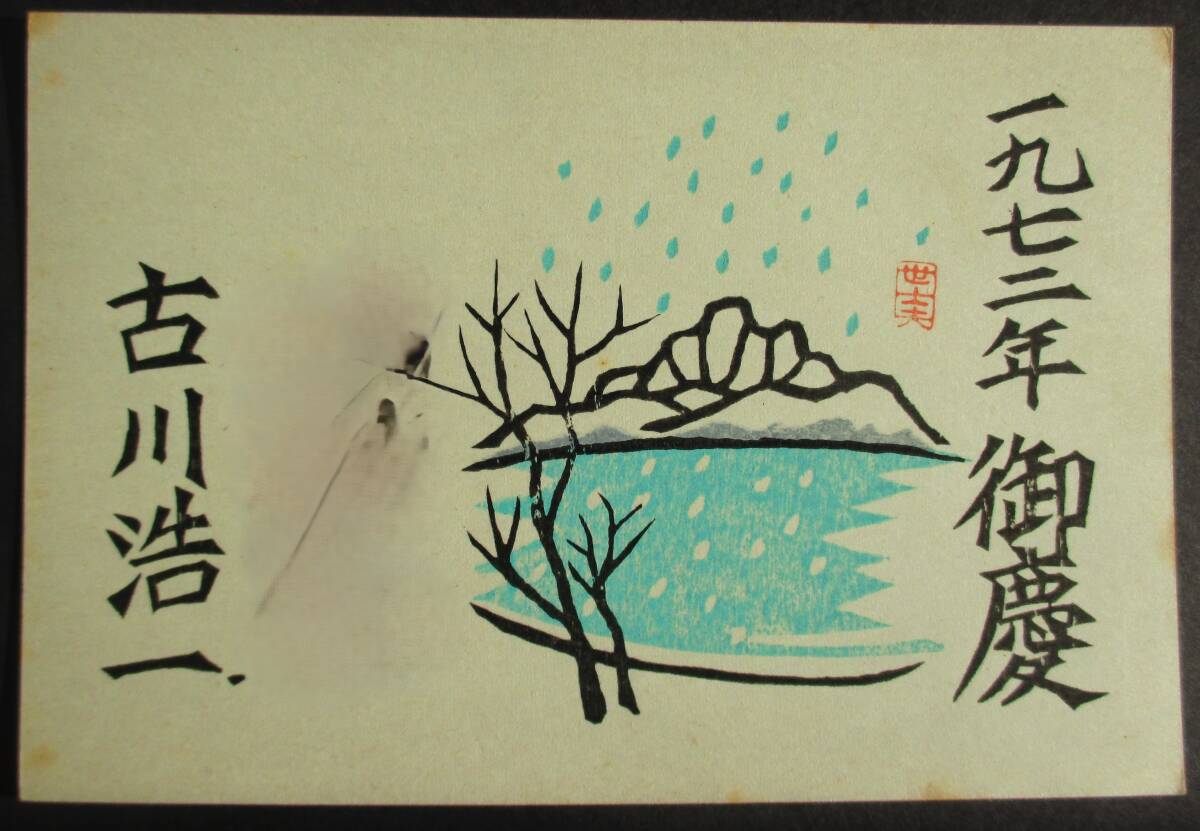 一九七二年 御慶
古川浩一